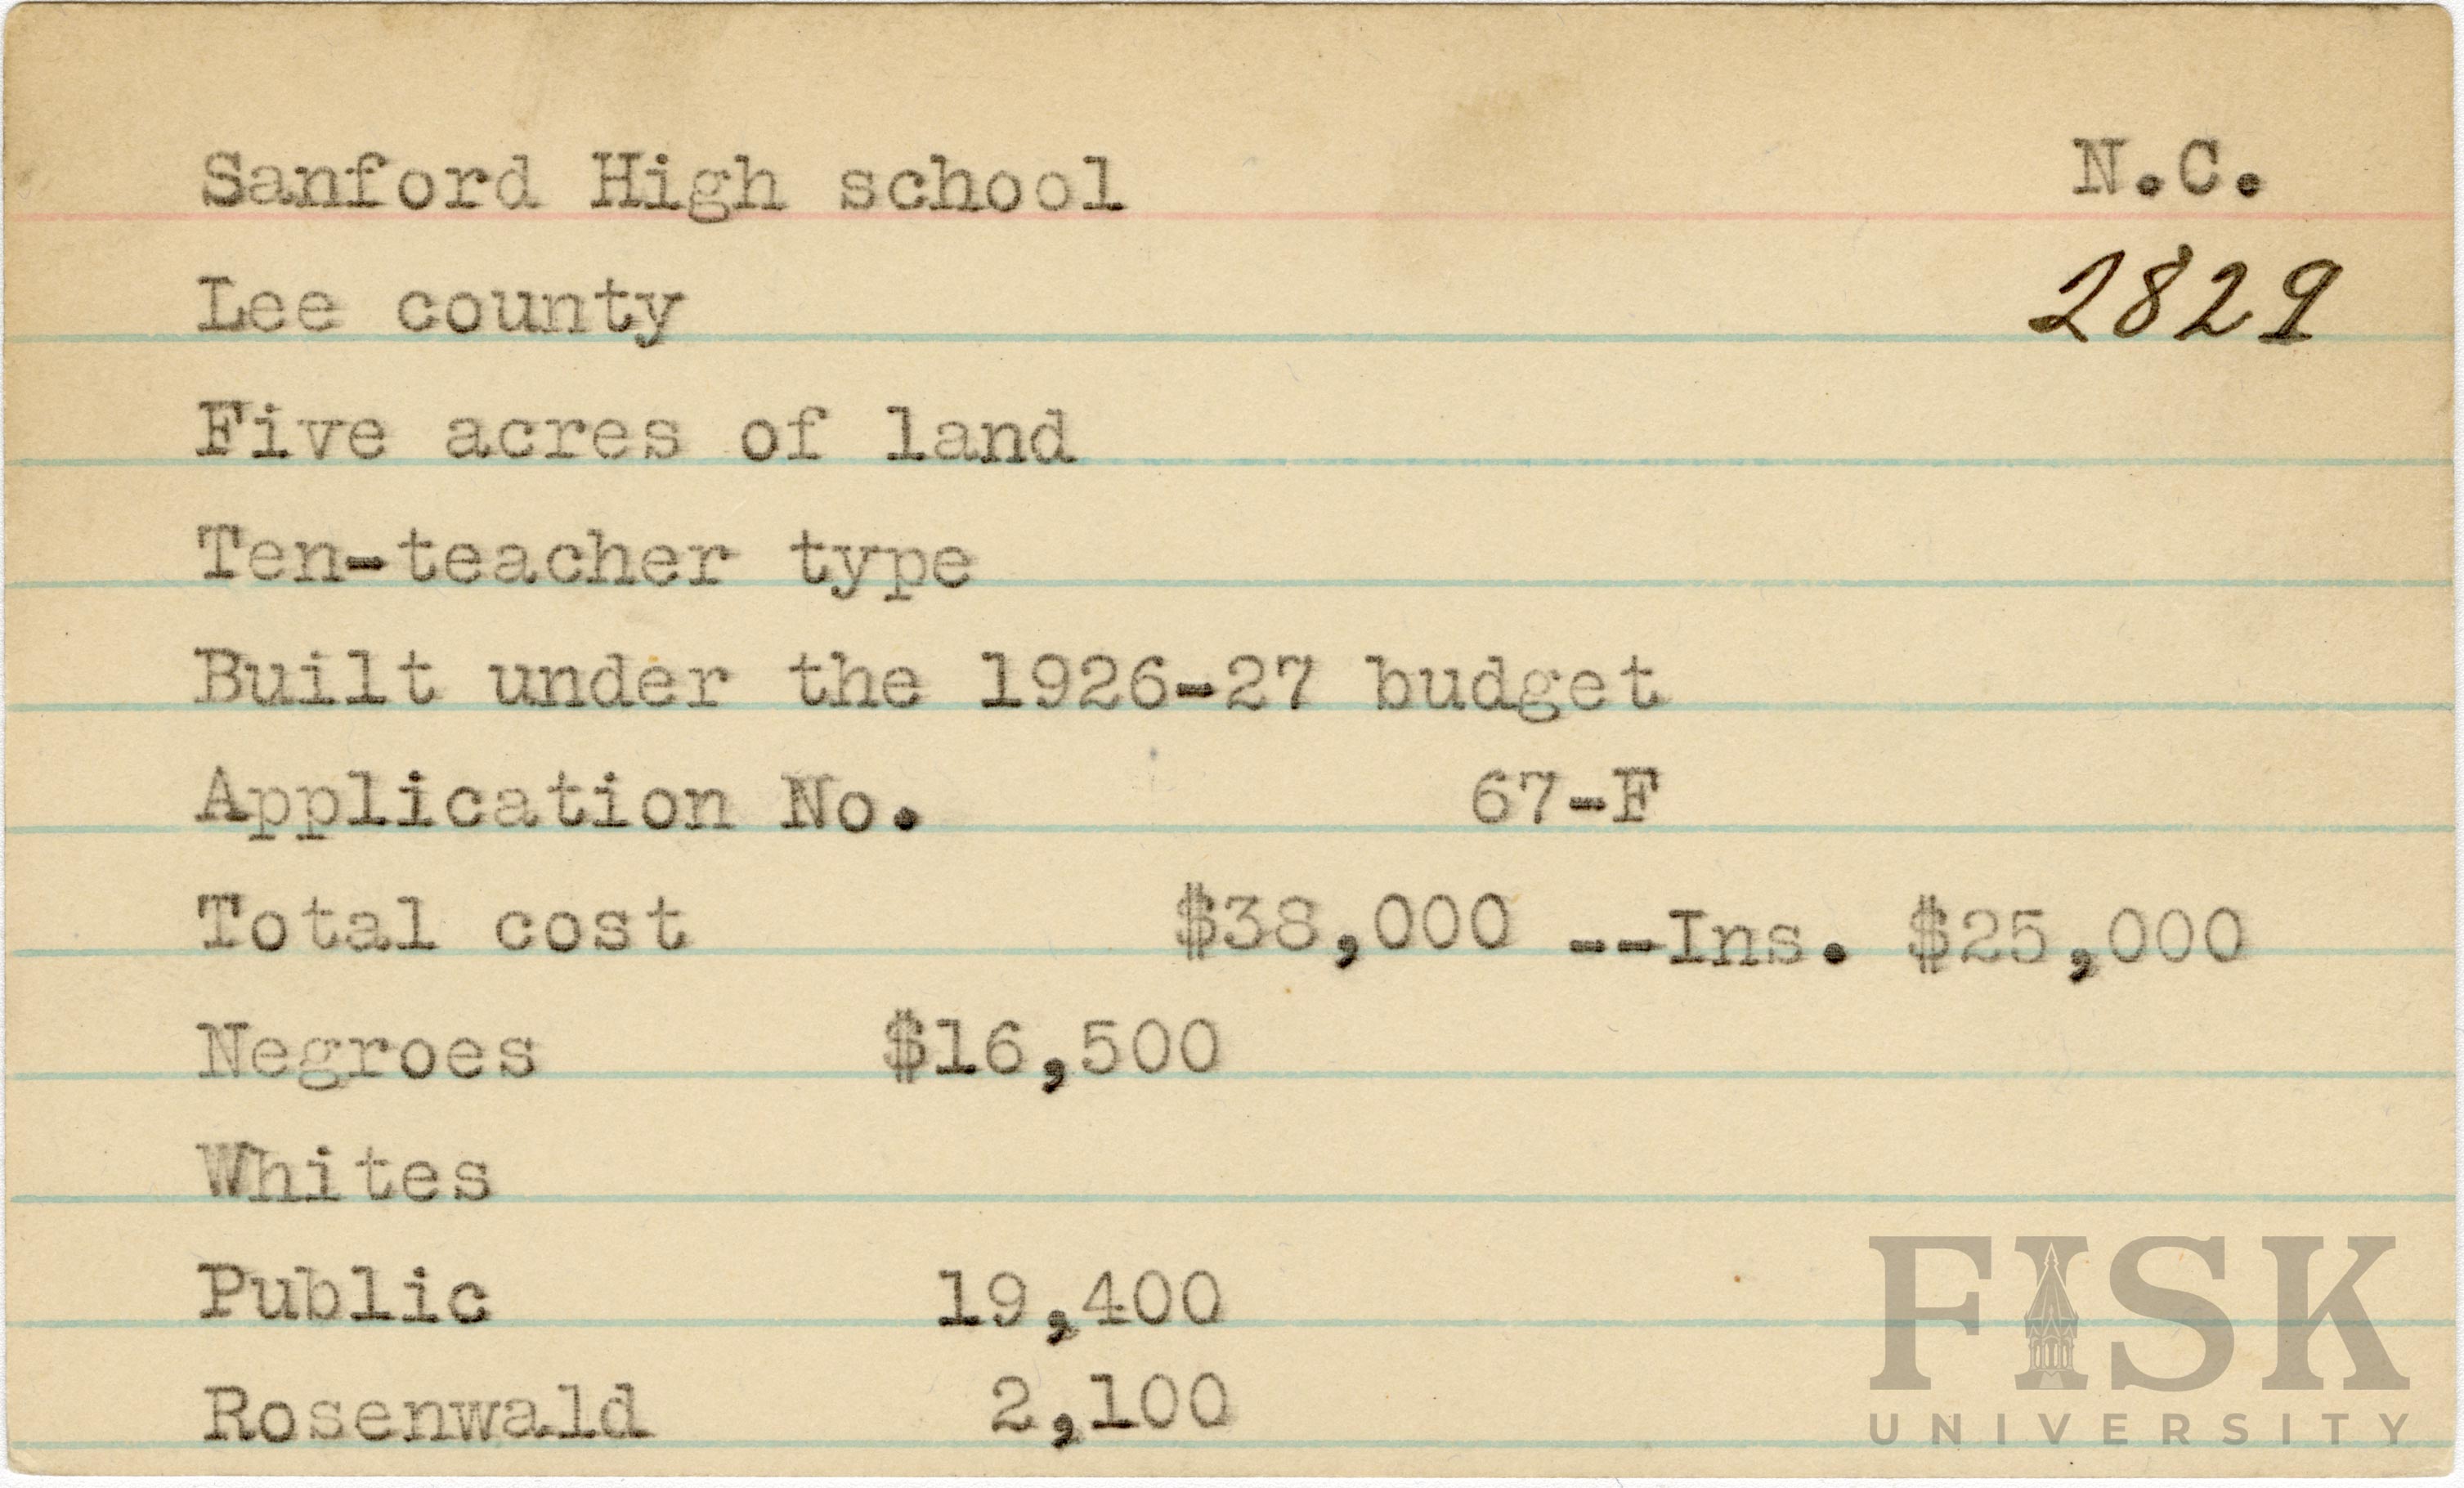 Sanford High school N.C.
Lee county 2829
Five acres of land
Ten-teacher type
Built under the 1926-27 budget
Application No. 67-F
Total cost $38,000 --Ins. $25,000
Negroes $16,500
Whites
Public 19,400
Rosenwald 2,100
FISK
UNIVERSITY